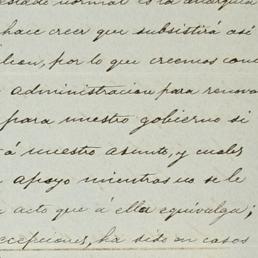 estado normal es la anarquia
hace creer que subsistirá así
por lo que creemos
administracion para
para nuestro gobierno si
á nuestro asunto, y cuales
apoyo mientras no se le
acto que á ella equivalga;
ecepciones, ha sido en casos